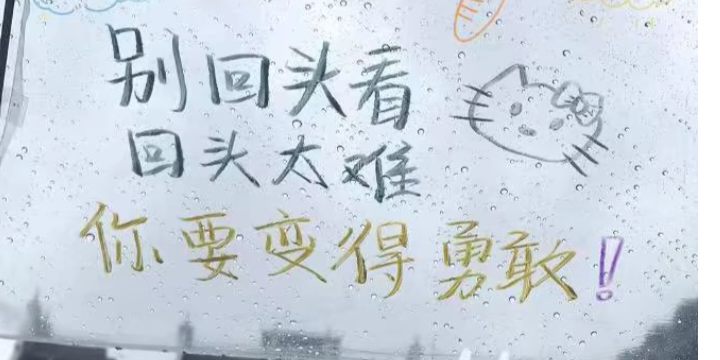 别回头看
回头太难
你要变得勇敢!